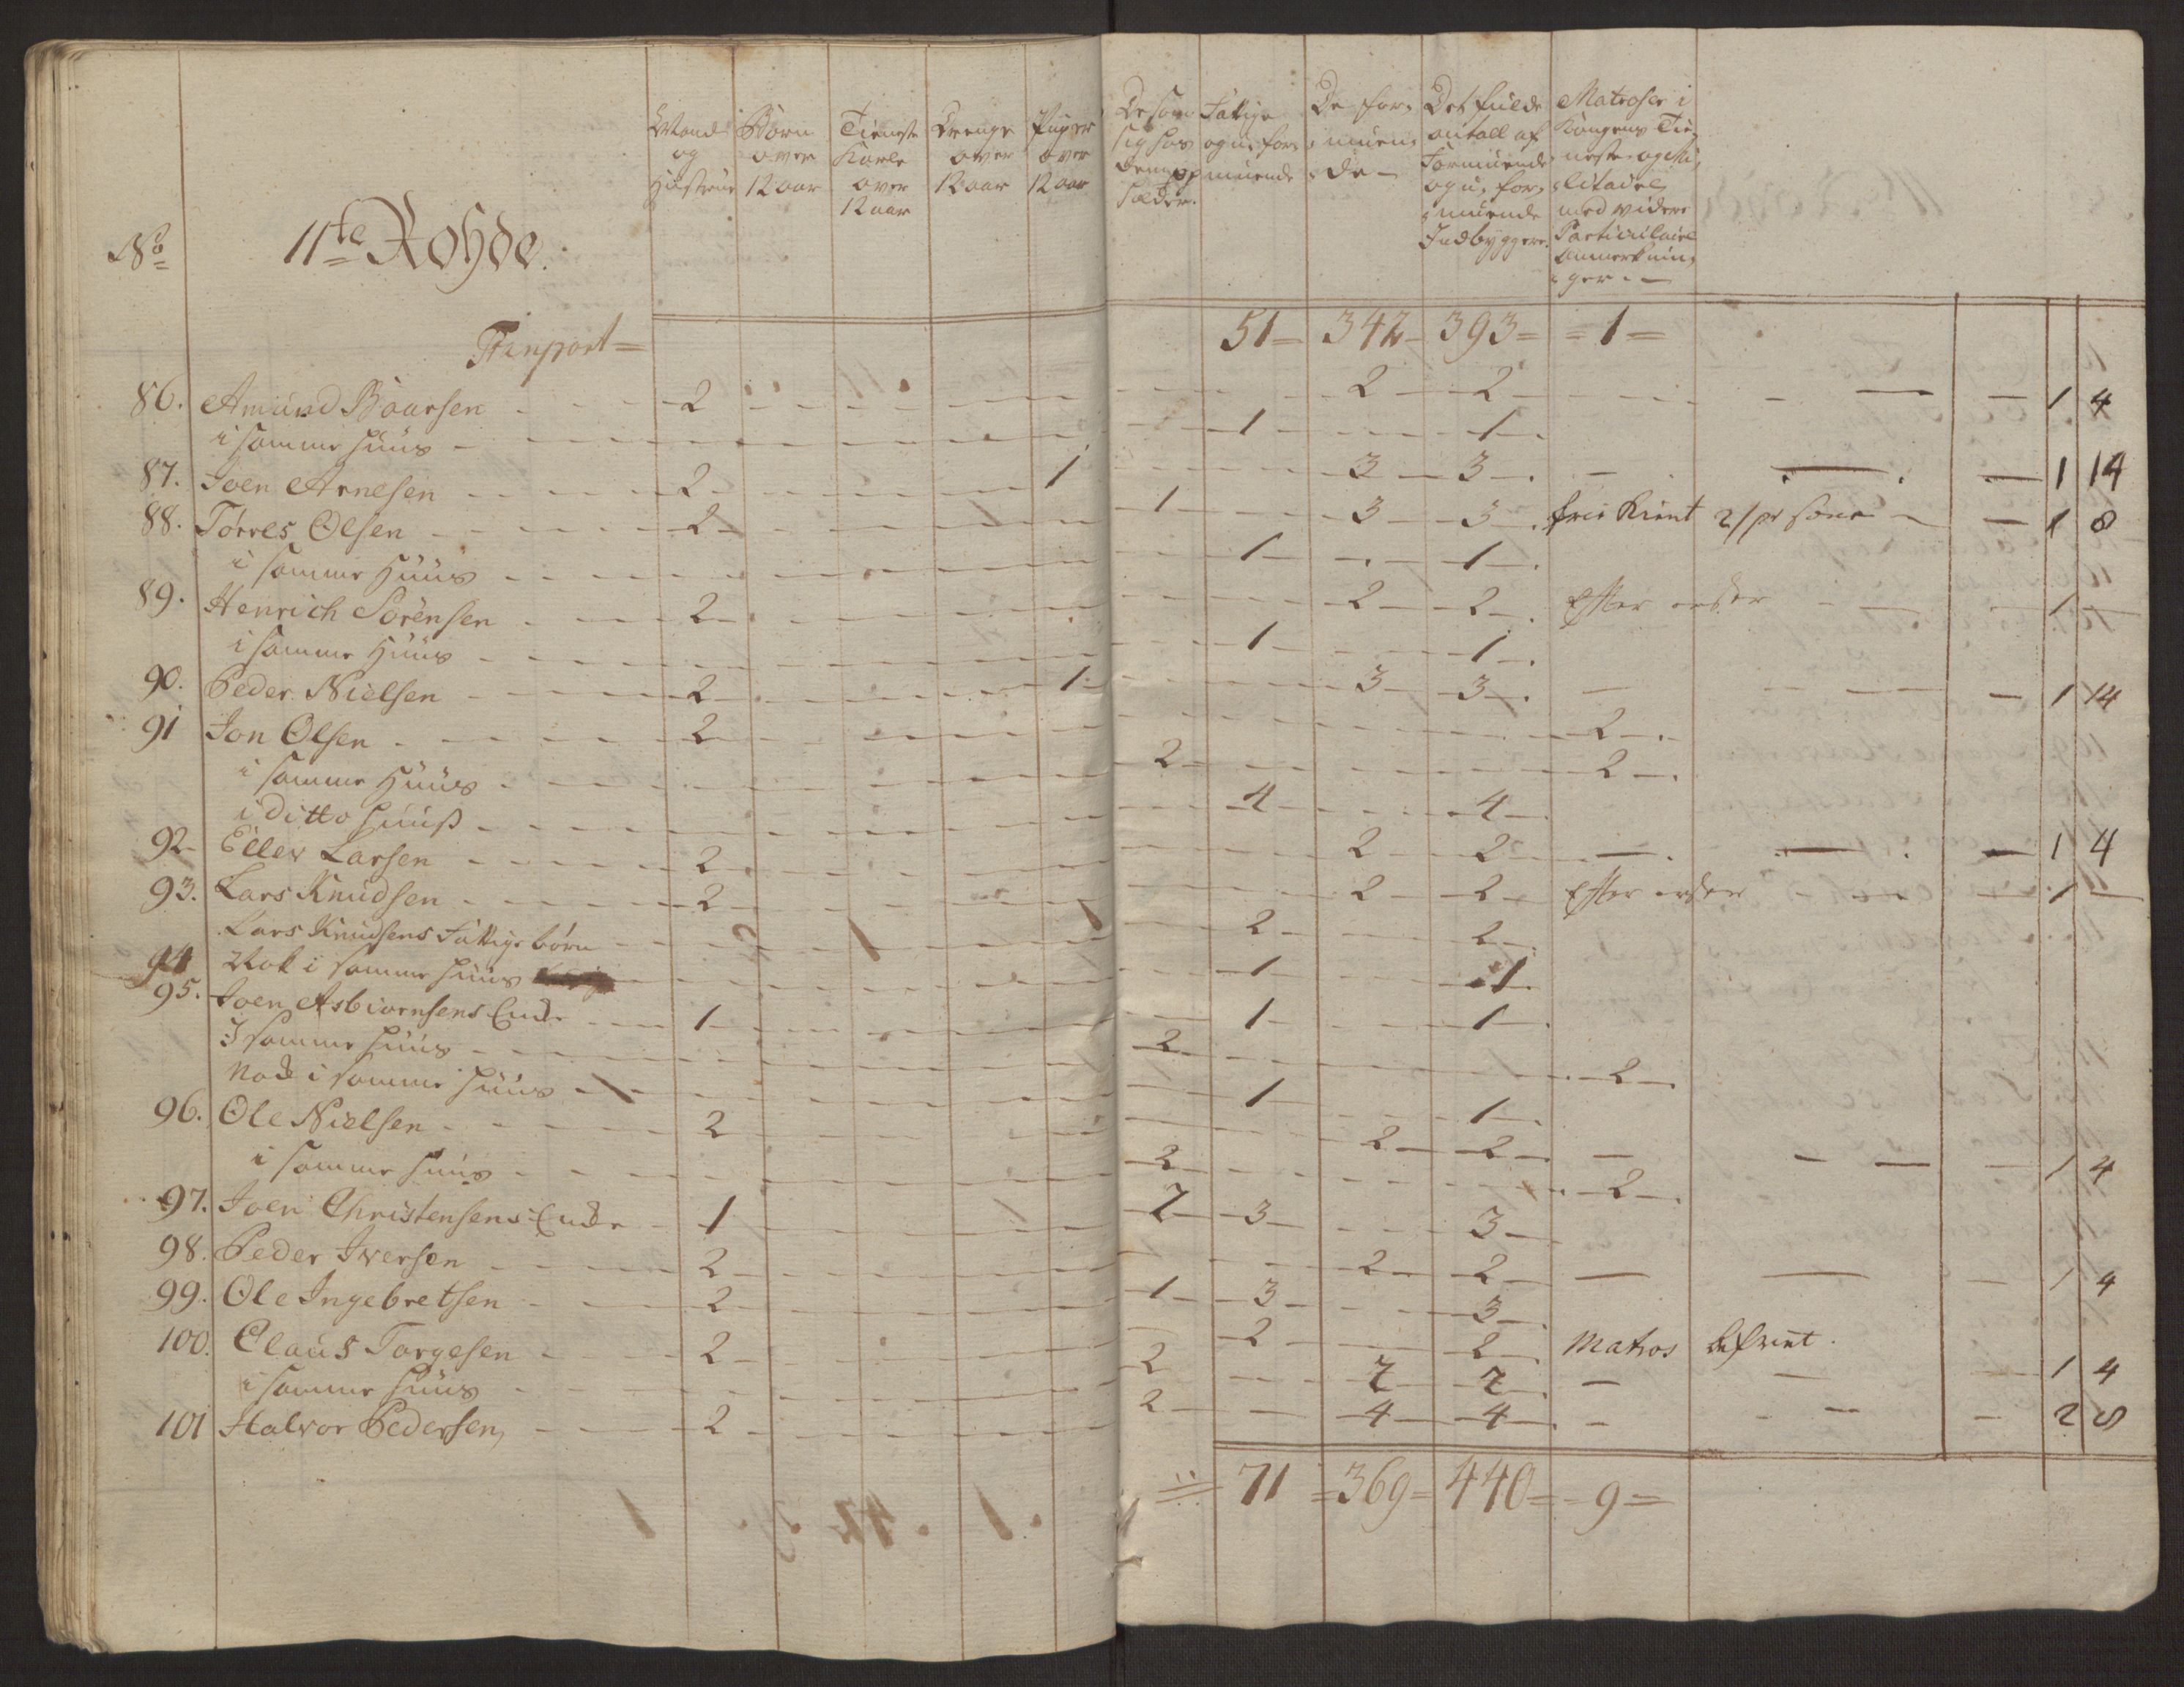 No
11te Rohde.
Mand og Hustrue
Børn over 12 aar
Tieneste Karle over 12 aar
Drenge over 12 aar
Piiger over 12 aar
De som sig hos dem opholder
Fattige og u-formuende
De for-muen-de
Det fulde antall af Formuende og u-formuende Indbyggere.
Matroser i Kongens Tie-neste og Ci-litaire med videre Particulaire Anmerknin-ger
Transport = 51 - 342 - 393 = = 1 =
86. Amund Boarsen 2 2 2 1 4
i samme Huus 1 1
87. Joen Arnesen 2 1 3 3 1 14
88. Torres Olsen 2 1 3 3 1 8
i samme Huus 1 1
89. Henrich Sørensen 2 2 2 Efter order 1
i samme Huus 1 1
90. Peder Nielsen 2 1 3 3 1 14
91 Jon Olsen 2 2
i samme Huus 2 2
i ditto Huus 4 4
92 Eller Larsen 2 2 2 1 4
93. Lars Knudsen 2 2 2 Efter order 1
Lars Knudsens Fattige børn 2 2
94 Nok i samme Huus 1 1
95. Joen Asbiørnsens Enke 1 1 1
I samme Huus 2 2
Nok i samme Huus 1 1
96. Ole Nielsen 2 2 2 1 4
i samme Huus 2 2
97. Joen Christensens Enke 1 2 3 3
98. Peder Iversen 2 2 2 1 4
99. Ole Ingebretsen 2 1 3 3
100. Claus Torgesen 2 2 2 Matros befriet.
i samme Huus 2 2 2 1 4
101 Halvor Pedersen 2 2 4 4 2 8
71 = 369 = 440 = 9 =